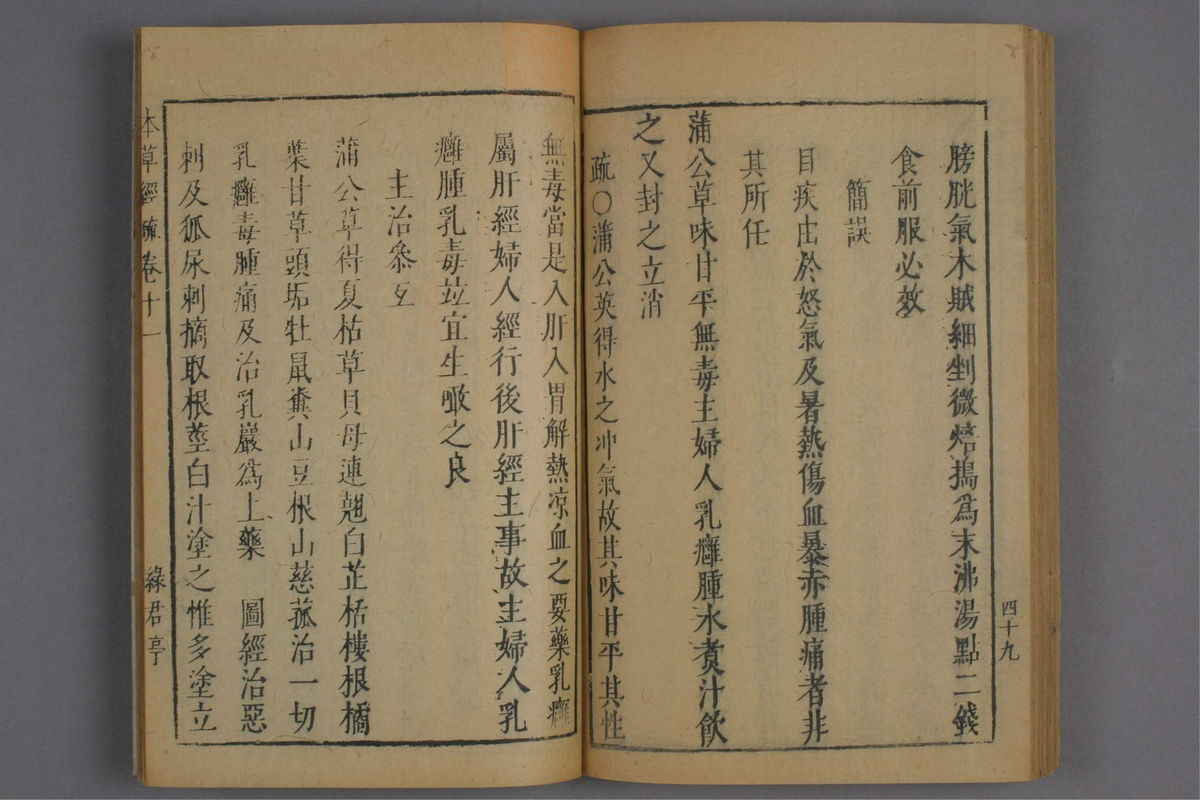 膀胱氣木賊細剉微焙搗爲末沸湯點二錢
食前服必效
簡誤
目疾由於怒氣及暑熱傷血暴赤腫痛者非
其所任
蒲公草味甘平無毒主婦人乳癰腫水煑汁飲
之又封之立消
疏○蒲公英得水之冲氣故其味甘平其性
四十九
無毒當是入肝入胃解熱凉血之要藥乳癰
屬肝經婦人經行後肝經主事故主婦人乳
癰腫乳毒竝宜生噉之良
主治叅互
蒲公草得夏枯草貝母連翹白芷栝樓根橘
葉甘草頭垢牡鼠糞山豆根山慈菰治一切
乳癰毒腫痛及治乳巖爲上藥　圖經治惡
刺及狐尿刺摘取根莖白汁塗之惟多塗立
本草經疏卷十一
綠君亭